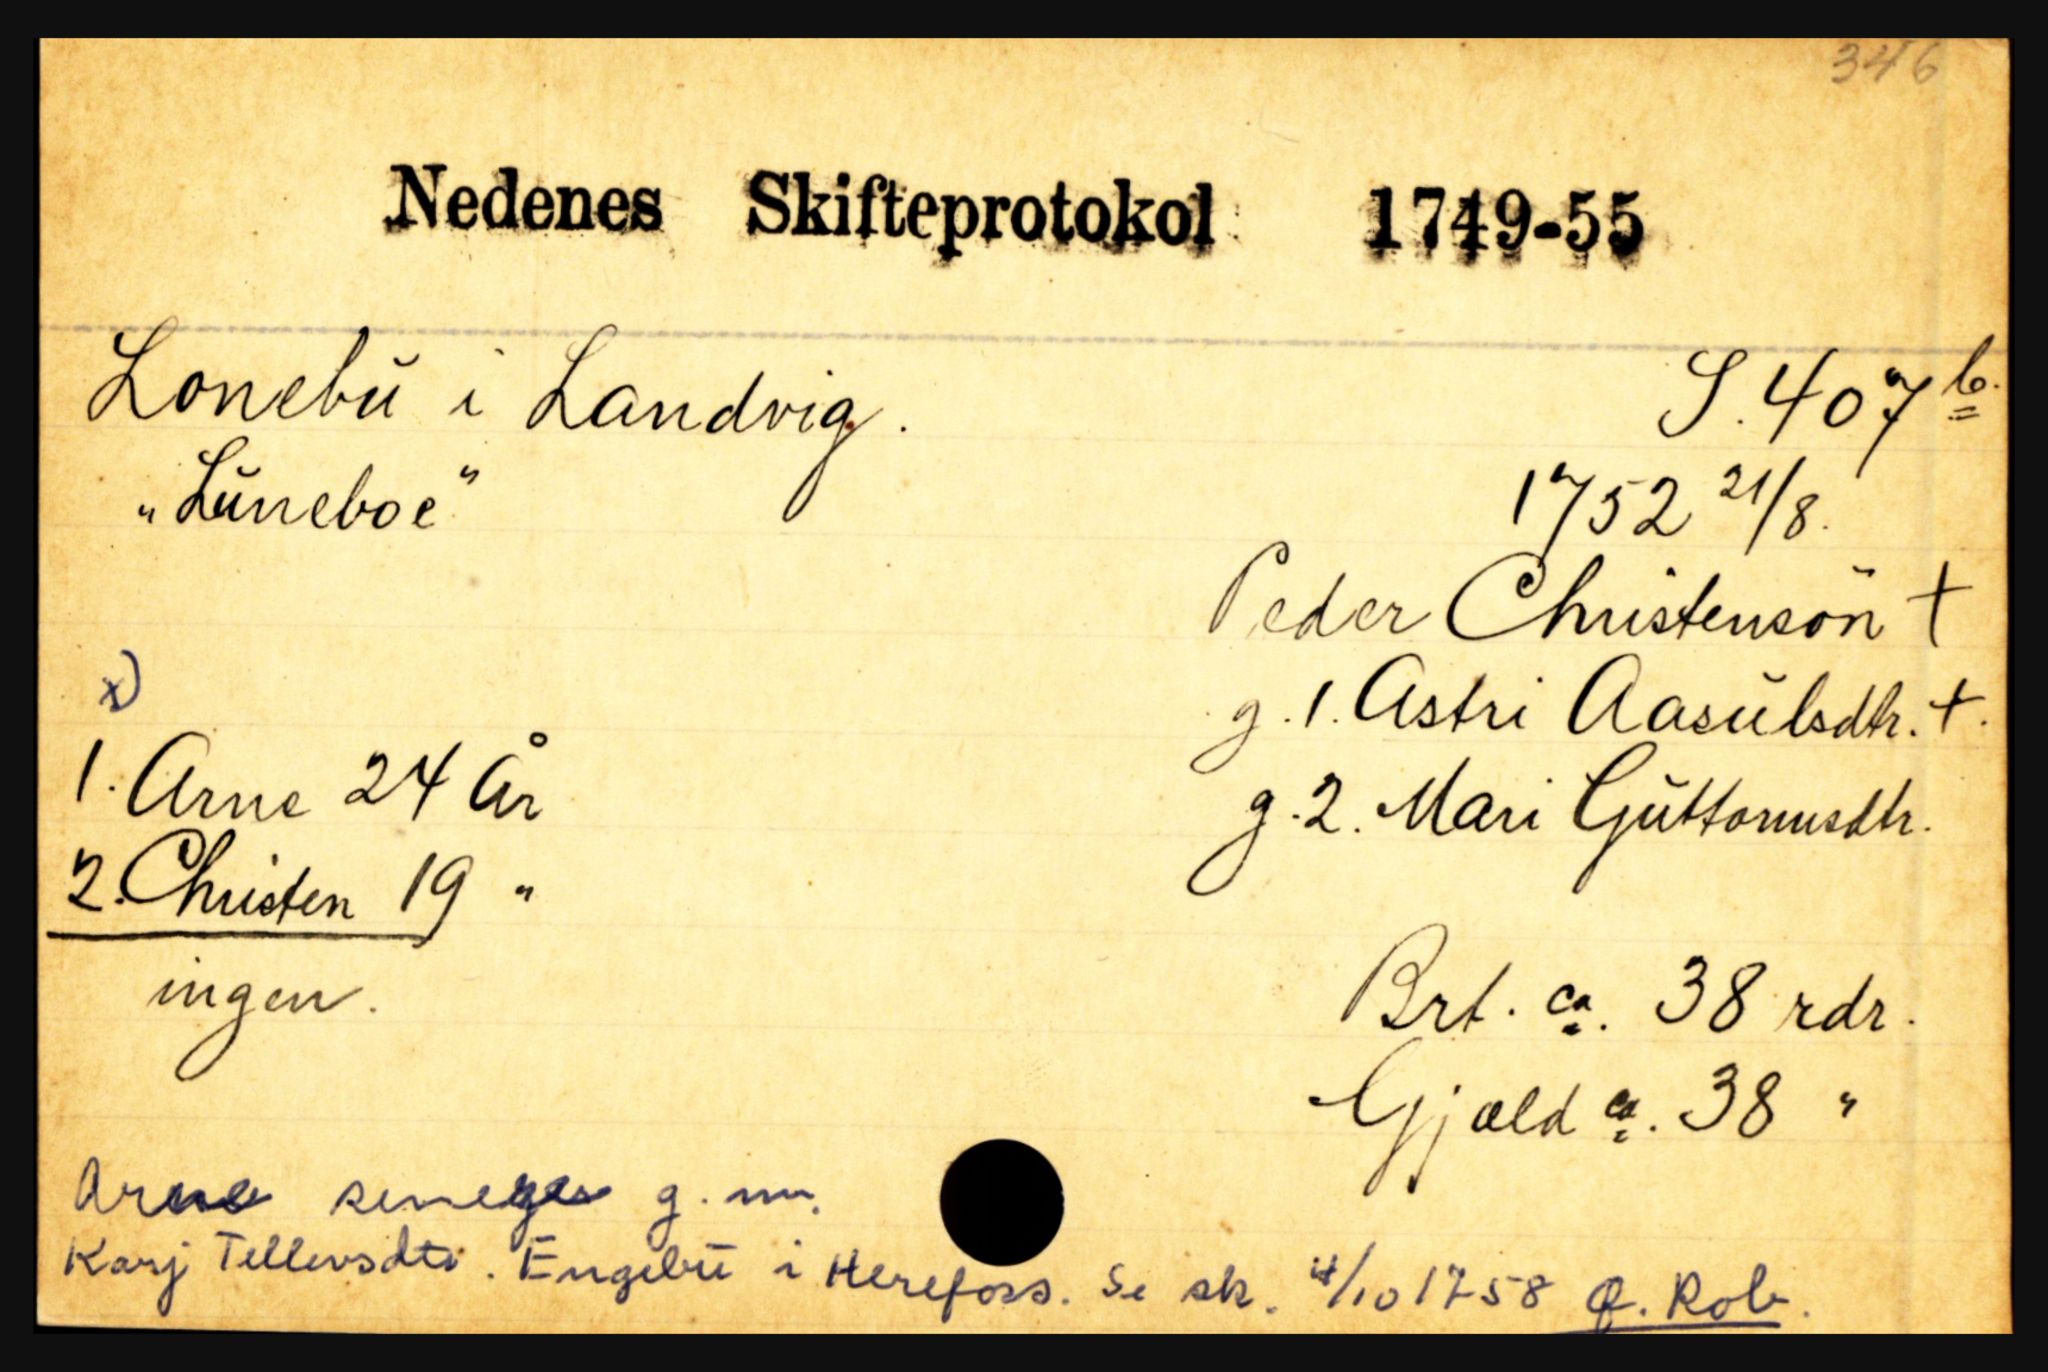 346
Nedenes Skifteprotokol 1749-55
Lonebŭ i Landvig.
S. 407 b.
"Lŭneboe"
1752 21/8.
Peder Christensön +
g. 1. Astri Aasŭlsdtr. +.
g. 2. Mari Gŭttormsdtr.
x)
1. Arne 24 År
2. Christen 19 "
ingen.
Brt. ca. 38 rdr.
Gjæld ca. 38 "
Arne senegre g. m.
Karj Tellevsdtr. Engebŭ i Herefoss. Se sk. /10 1758 Q. Rob.